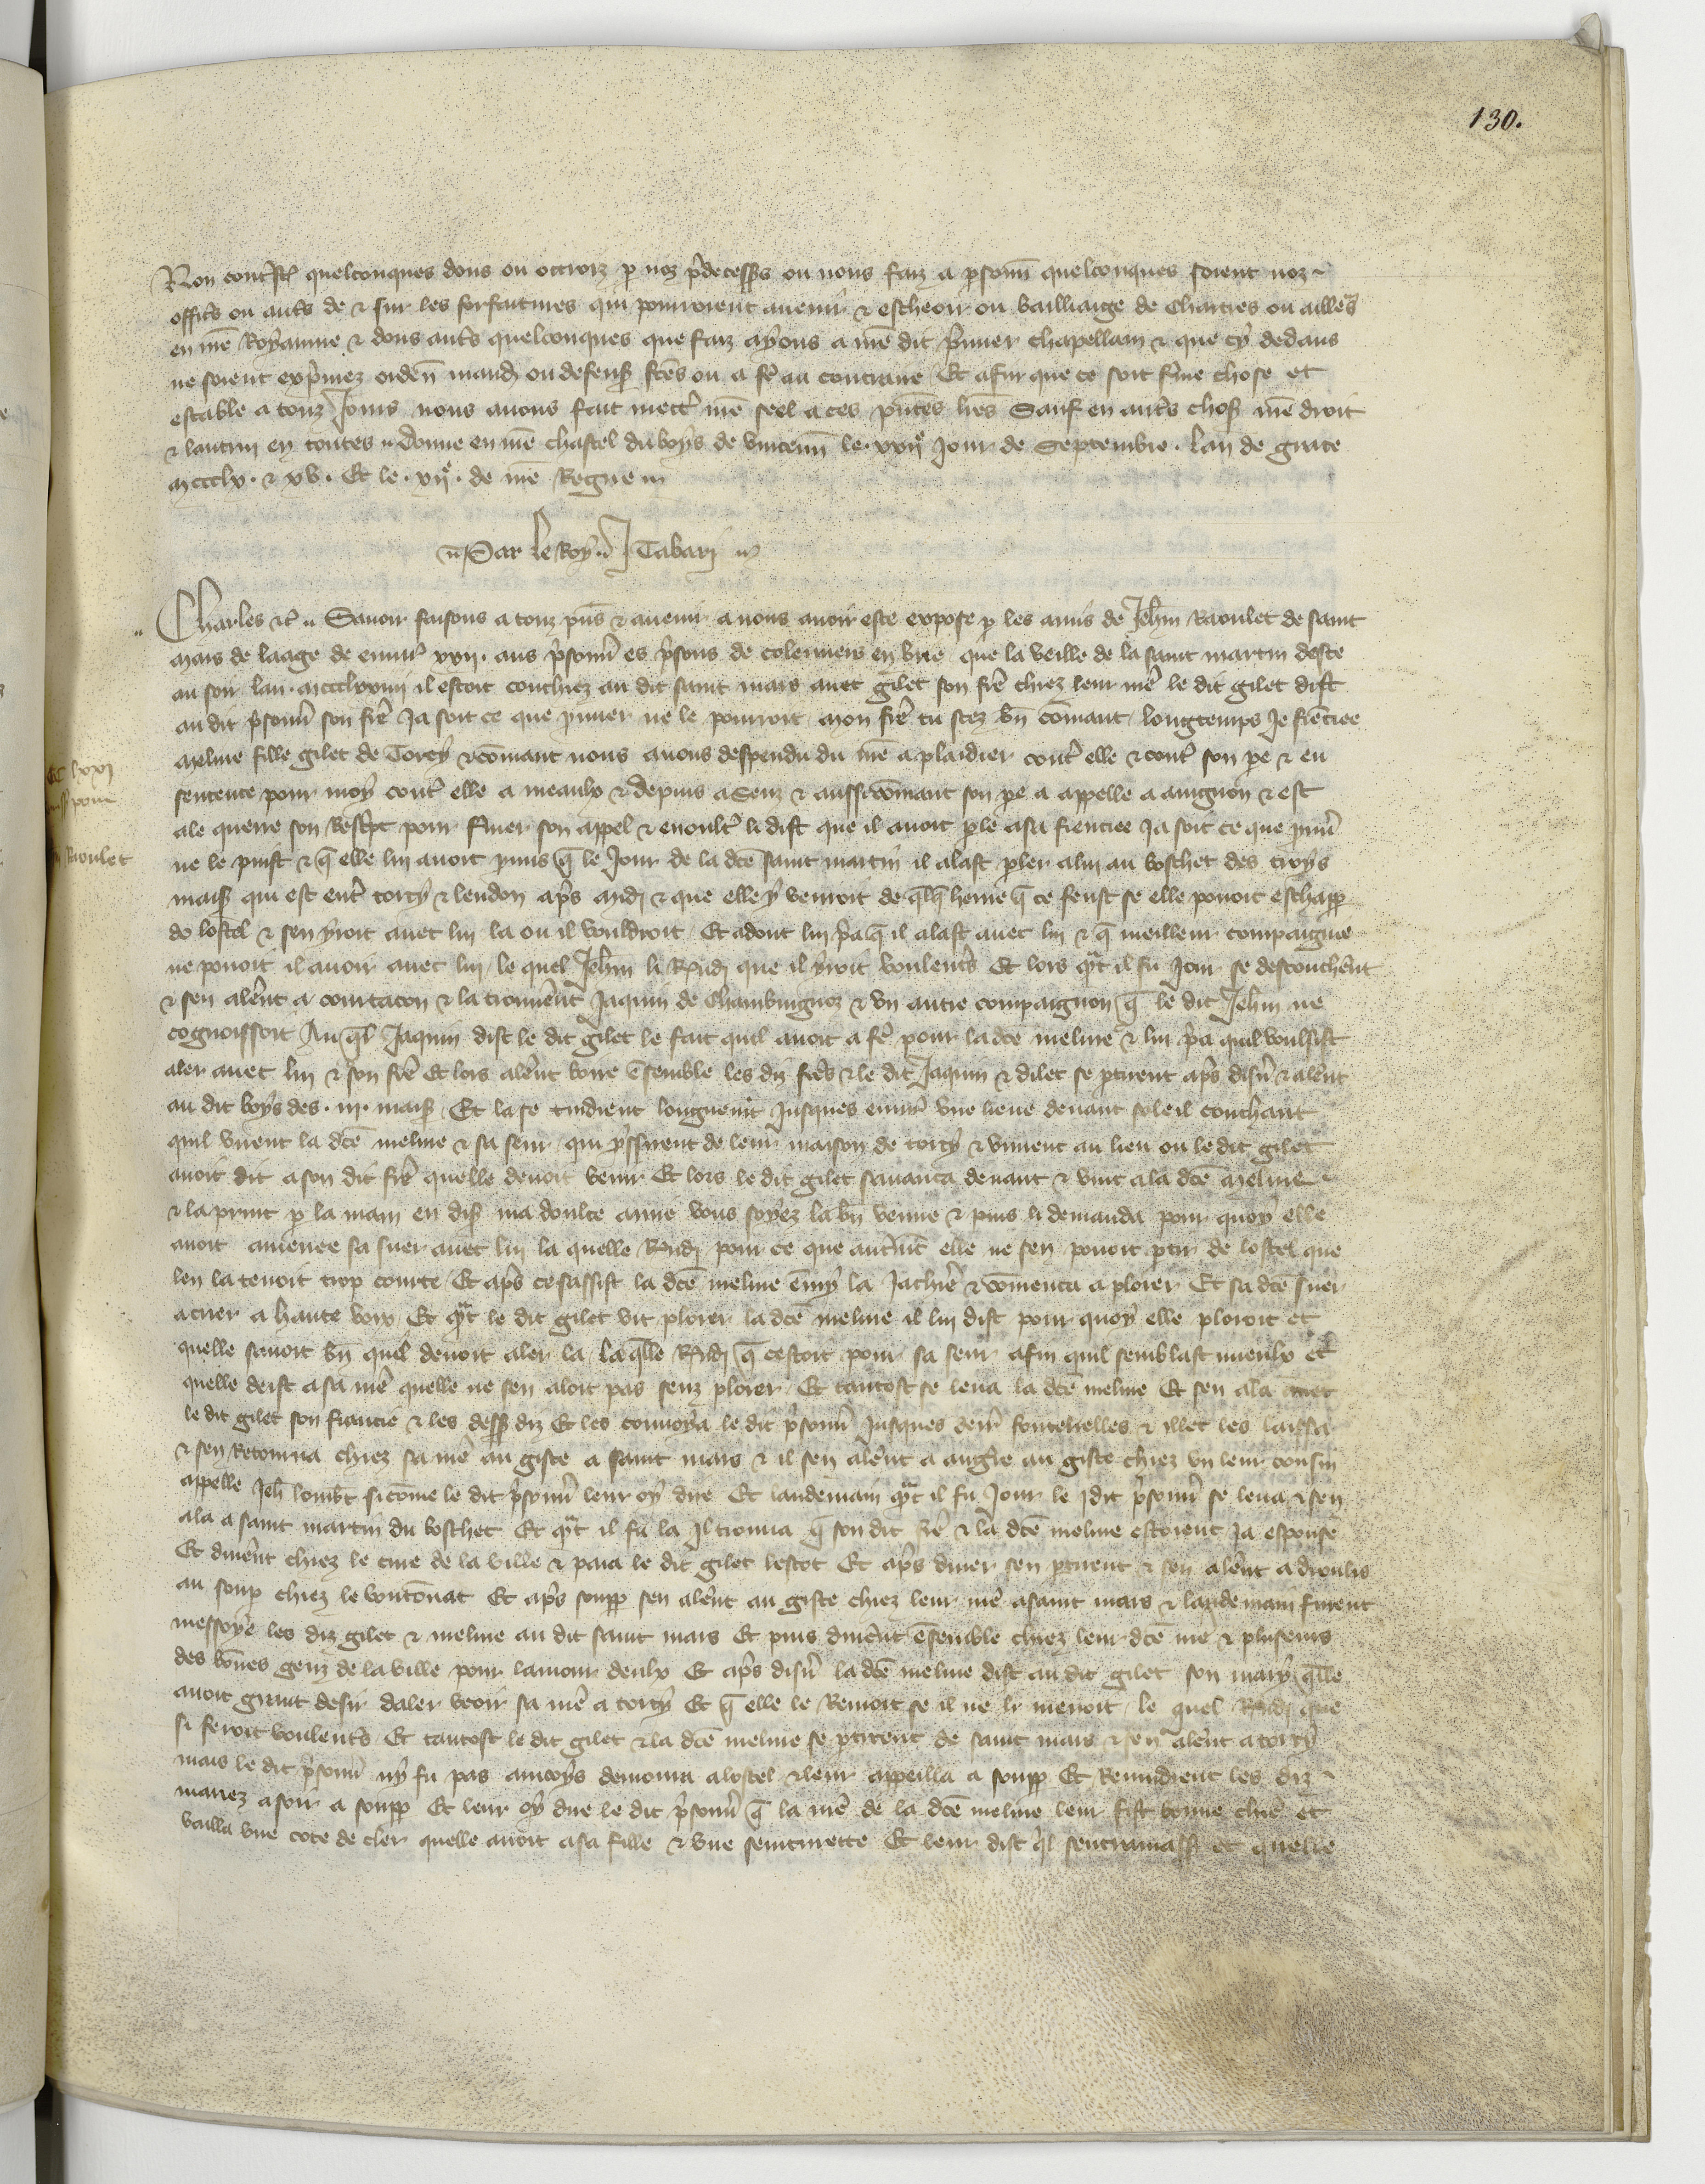 130.
Non contrest quelconques dons ou octroiz p noz predecesss ou nous faiz a psonn quelconques soient noz
offics ou auts de & sur les forfaitures qui pourroient avenir & escheoir ou bailliaige de Chartres ou ailles
en nre Royaume & dons auts quelconques que faiz ayons a nre dit pmier chapellain & que cy dedans
ne soient expmez orden mand ou defens fces ou a fe au contraire Et afin que ce soit ferme chose et
estable a touz Jours nous avons fait mett nre seel a ces pntes lres Sauf en auts choses nre droit
& lautrui en toutes Donne en nre chastel du boys de vincenn le xxii e Jour de Septembre Lan de grace
mccclx & xv Et le xii e de nre Regne
Par le Roy J Tabari
Charles &c Savoir faisons a touz pns & avenir a nous avoir este expose p les amis de Jehn Raoulet de saint
mars de laage de envir xxii ans psonn es psons de colemiers en brie que la veille de la saint martin deste
au soir lan mccclxxiiii il estoit couchiez au dit saint mars avec gilet son fre chiez leur me le dit gilet dist
au dit psonn son fre Ja soit ce que pmer ne le pourroit mon fre tu scez bn comant longtemps Je fienciee
meline fille gilet de Torcy & comant nous avons despendu du nre a plaidier cont elle & cont son pe & eu
sentence pour moy cont elle a meaulx & depuis a Senz & aussi comant son pe a appelle a avignon & est
ale querre son Rescpt pour finer son appel & enoult li dist que il avoit ple a sa fienciee Ja soit ce que pnn
ne le puist & q elle lui avoit pmis q le Jour de la dce saint martin il alast pler a lui au boschet des troys
mais qui est ent torcy & leudon aps mid & que elle y venroit de qlq heure q ce feust se elle povoit eschapp
de lostel & sen yroit avec lui la ou il vouldroit Et adont lui pa q il alast avec lui & q meilleur compaignie
ne povoit il avoir avec lui le quel Jehn li Rndi que il yroit voulents Et lors qnt il fu Jour se descouchent
& sen alent a courtacon & la trouvent Jaquin de Chambuignoz & vn autre compaignon q le dit Jehn ne
cognoissoit Au ql Jaquin dist le dit gilet le fait quil avoit a fe pour la dce meline & lui pa quil voulsist
aler avec lui & son fre Et lors alent boire ensemble les diz fres & le dit Jaquin & dilec se ptirent aps disn & alent
au dit boys des iii mais Et la se tindrent longuemt Jusques envir vne lieue devant soleil couchant
quil virent la dce meline & sa seur qui yssirent de leur maison de torcy & vinrent au lieu ou le dit gilet
avoit dit a son dit fre quelle devoit venir Et lors le dit gilet savanca devant & vint a la dce meline
& la print p la main en dis ma doulce amie vous soyez la bn venue & puis li demanda pour quoy elle
avoit amenee sa suer avec lui la quelle Rndi pour ce que autmt elle ne sen povoit ptir de lostel que
len la tenoit trop courte Et aps ce sassist la dce meline emy la Jachie & comenca a plorer Et sa dce suer
a crier a haute voix Et qnt le dit gilet vit plorer la dce meline il lui dist pour quoy elle ploroit et
quelle savoit bn quel devoit aler la La qlle Rndi q cestoit pour sa seur afin quil semblast mieulx et
quelle deist a sa me quelle ne sen aloit pas senz plorer Et tantost se leva la dce meline Et sen ala avec
le dit gilet son fiancie & les dess diz Et les convoya le dit psonn Jusques ders fontenelles & illec les laissa
& sen Retourna chiez sa me au giste a saint mars & il sen alent a augre au giste chiez vn leur cousin
appelle Jeh lombt si come le dit psonn leur oy dire Et landemain qnt il fu Jour le dit psonn se leva & sen
ala a saint martin du boschet Et qnt il fu la Il trouva q son dit fre & la dce meline estoient Ja espouse
Et dinent chiez le cure de la ville & paia le dit gilet lescot Et aps diner sen ptirent & sen alent a droulis
au soup chiez le voutonat Et aps soupp sen alent au giste chiez leur me a saint mars & landemain furent
messoye les diz gilet & meline au dit saint mars Et puis dinent ensemble chiez leur dce me & pluseurs
des bones genz de la ville pour lamour deulx Et aps disn la dce meline dist au dit gilet son mary qlle
avoit grant desir daler veoir sa me a torcy Et q elle le Remoit se il ne li menoit le quel Rndi que
si feroit voulents Et tantost le dit gilet & la dce meline se ptirent de saint mars & sen alent a torcy
mais le dit psonn ny fu pas aincoys demoura a lostel & leur appeilla a soupp Et Revindrent les diz
mariez a soir a soupp Et leur oy dire le dit psonn q la me de la dce meline leur fist bonne chie et
bailla vne cote de cler quelle avoit a sa fille & vne seinturette Et leur dist ql sentramass et quelle
Raoulet